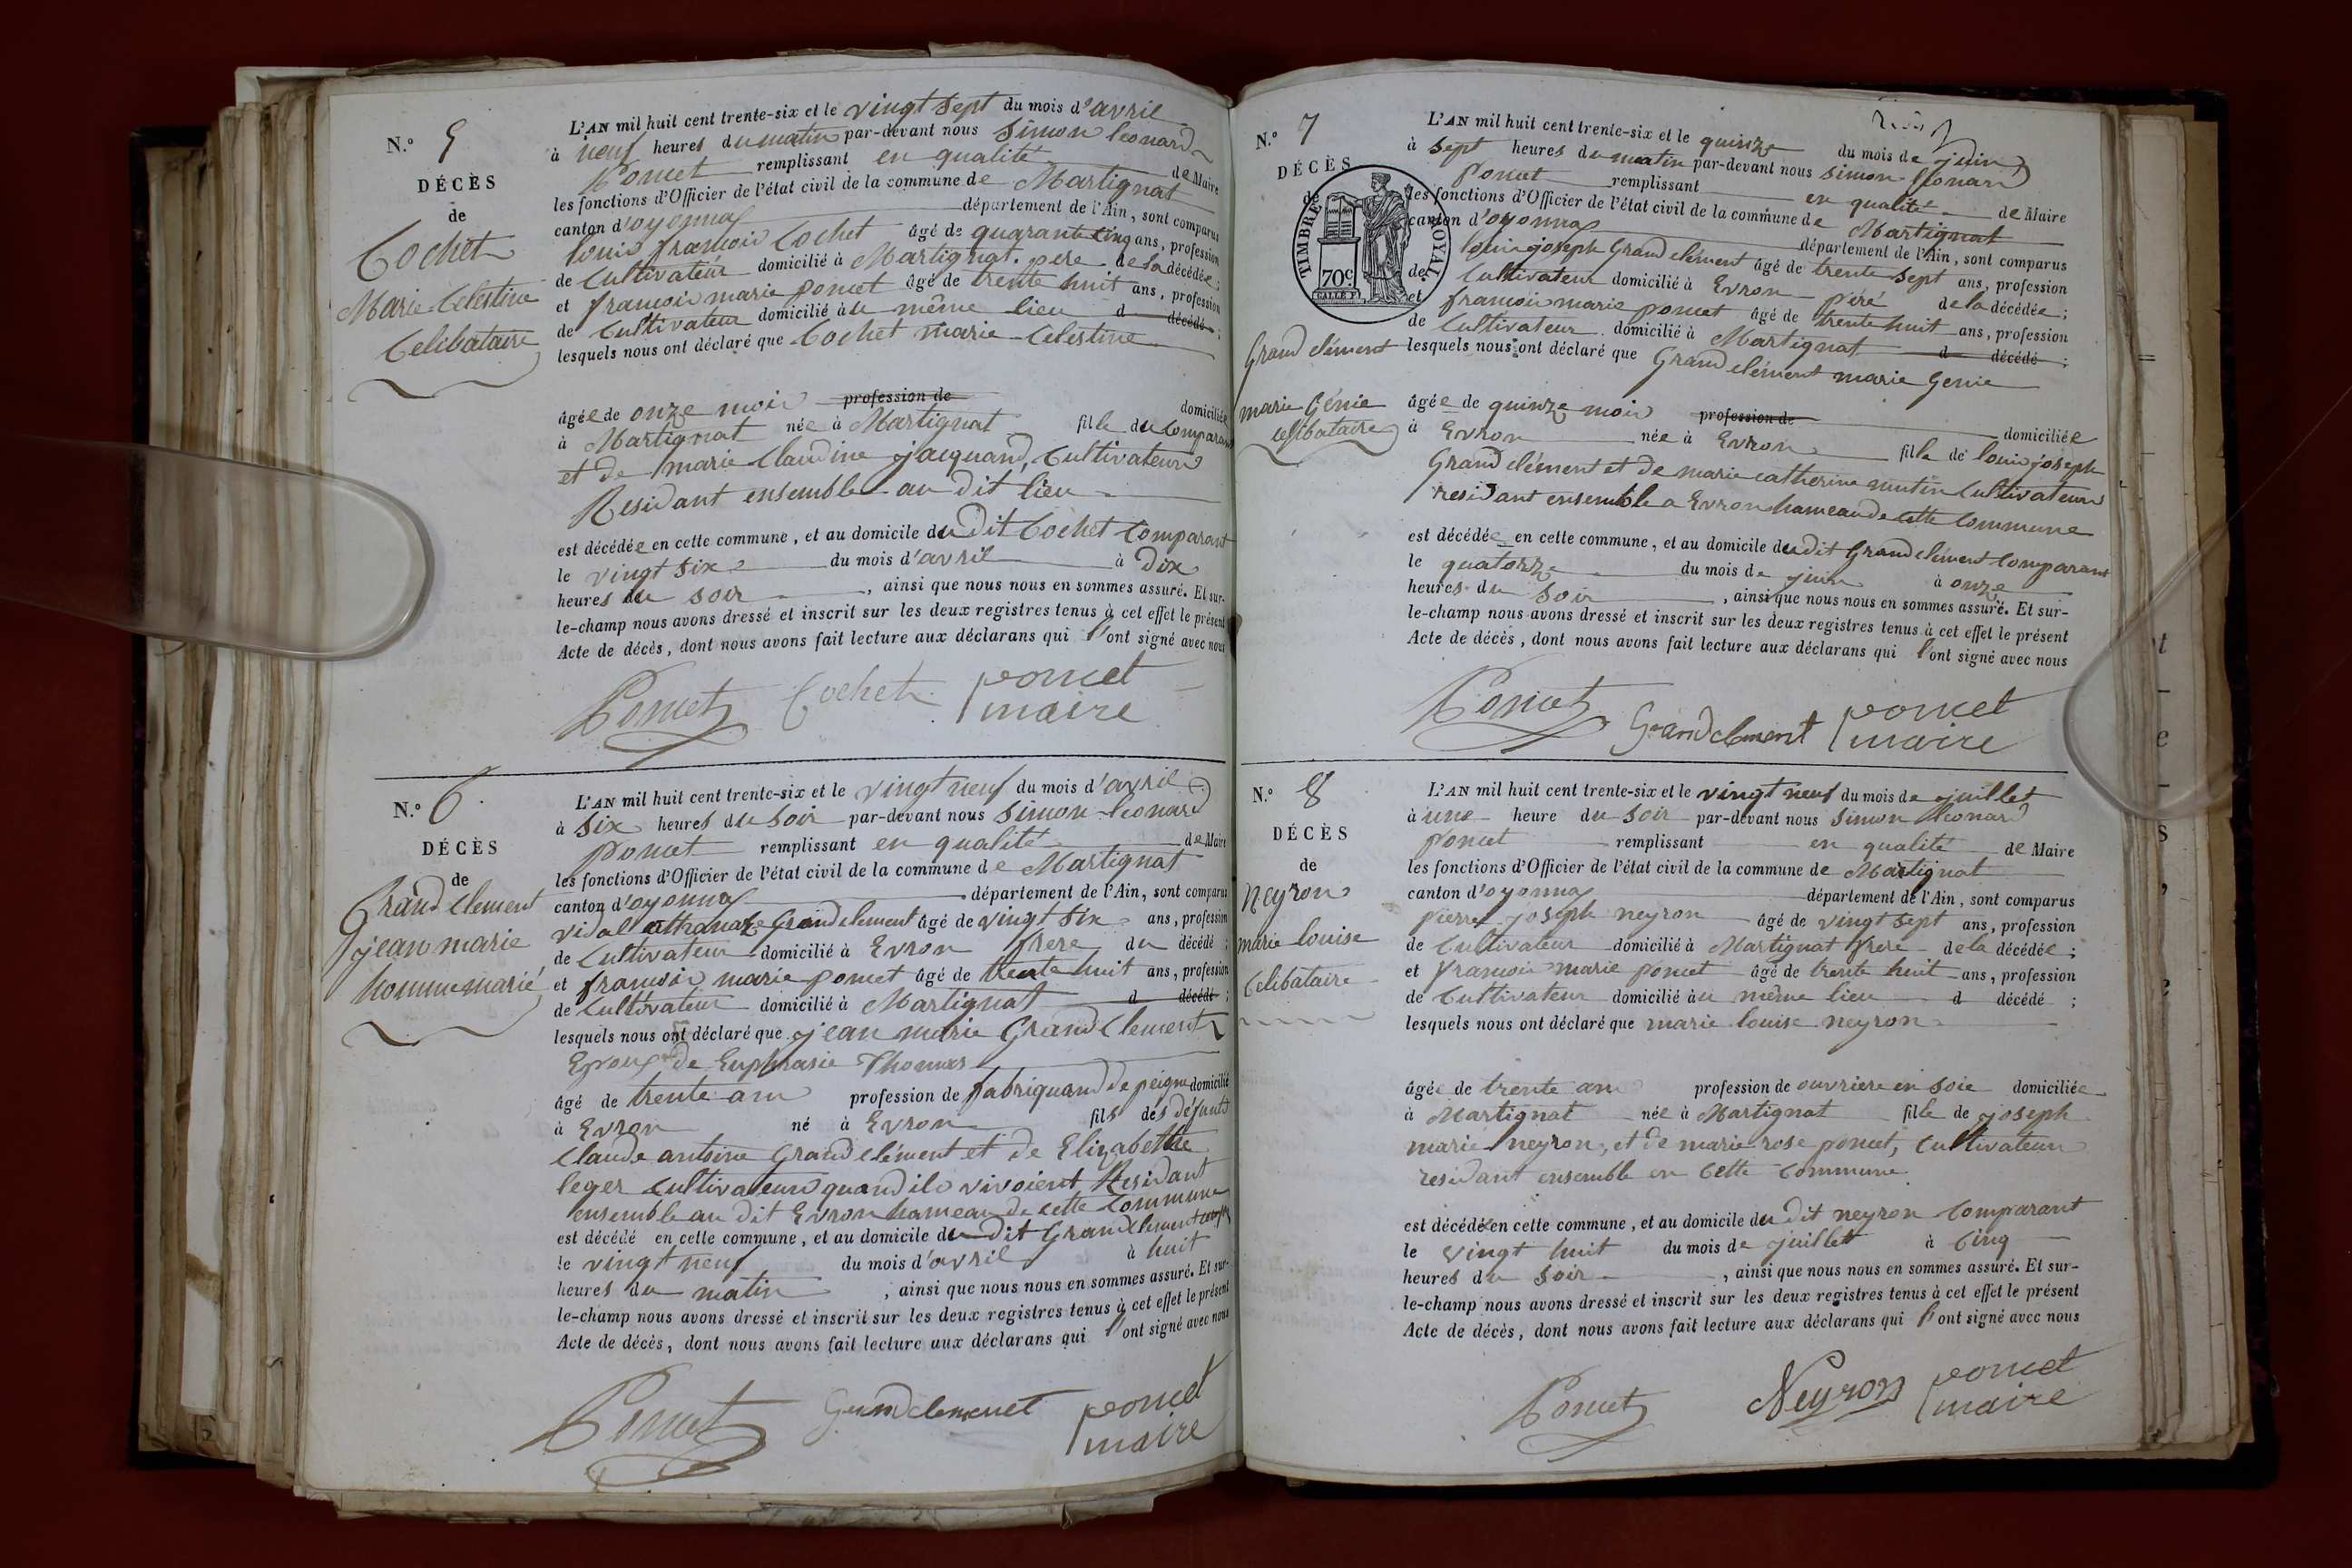 N.° 5
DÉCÈS
de
Cochet
Marie Celestine
Celibataire
L'AN mil huit cent trente-six et le vingt sept du mois d'avril
à neuf heures du matin par-devant nous Simon leonard
Poncet remplissant en qualité de Maire
les fonctions d'Officier de l'état civil de la commune de Martignat
canton d'oyonnax département de l'Ain, sont comparus
louis françois Cochet âgé de quarante cinq ans, profession
de Cultivateur domicilié à Martignat. pere de la décédée;
et françois marie poncet âgé de trente huit ans, profession
de Cultivateur domicilié àu même lieu d décédé ;
lesquels nous ont déclaré que Cochet marie Celestine
âgée de onze mois profession de domiciliée
à Martignat née à Martignat fille du Comparant
et de marie Claudine jacquand, Cultivateurs
Residant ensemble au dit lieu
est décédée en cette commune, et au domicile du Dit Cochet Comparant
le vingt six du mois d'avril à Dix
heures du soir , ainsi que nous nous en sommes assuré. Et sur-
le-champ nous avons dressé et inscrit sur les deux registres tenus à cet effet le présent
Acte de décès, dont nous avons fait lecture aux déclarans qui l'ont signé avec nous
Poncet Cochet poncet
maire
N.° 6
DÉCÈS
de
Grand Clement
jean marie
homme marié
L'AN mil huit cent trente-six et le vingt neuf du mois d'avril
à six heures du soir par-devant nous Simon leonard
poncet remplissant en qualité de Maire
les fonctions d'Officier de l'état civil de la commune de Martignat
canton d'oyonnax département de l'Ain, sont comparus
vidal athanaze Grandclement âgé de vingt six ans, profession
de Cultivateur domicilié à Evron frere du décédé ;
et françois marie poncet âgé de trente huit ans, profession
de Cultivateur domicilié à Martignat d décédé ;
lesquels nous ont déclaré que jean marie Grand Clement
Epoux de Euphrasie Thomas
âgé de trente ans profession de fabriquand de peigne domicilié
à Evron né à Evron fils des défunts
Claude antoine Grand clément et de Elizabethe
leger cultivateurs quand ils vivoient Residant
ensemble au dit Evron hameau de cette Commune
est décédé en cette commune, et au domicile du Dit Grandclement
le vingt neuf du mois d'avril à huit
heures du matin , ainsi que nous nous en sommes assuré. Et sur-
le-champ nous avons dressé et inscrit sur les deux registres tenus à cet effet le présent
Acte de décès, dont nous avons fait lecture aux déclarans qui l'ont signé avec nous
Poncet Grandclement poncet
maire
N.° 7
DÉCÈS
de
TIMBRE ROYAL
70c
Grand clément
marie Génie
celibataire
L'AN mil huit cent trente-six et le quinze du mois de juin
à sept heures du matin par-devant nous simon leonard
Poncet remplissant en qualité de Maire
les fonctions d'Officier de l'état civil de la commune de Martignat
canton d'oyonnax département de l'Ain, sont comparus
louis joseph Grand clément âgé de trente sept ans, profession
de Cultivateur domicilié à Evron père de la décédée;
et françois marie poncet âgé de trente huit ans, profession
de Cultivateur domicilié à Martignat d décédé ;
lesquels nous ont déclaré que Grand clément marie Genie
âgée de quinze mois profession de domiciliée
à Evron née à Evron fille de louis joseph
Grand clément et de marie catherine mutin Cultivateurs
residant ensemble a Evron hameau de cette Commune
est décédée en cette commune, et au domicile du dit Grand clément Comparant
le quatorze du mois de juin à onze
heures du soir , ainsi que nous nous en sommes assuré. Et sur-
le-champ nous avons dressé et inscrit sur les deux registres tenus à cet effet le présent
Acte de décès, dont nous avons fait lecture aux déclarans qui l'ont signé avec nous
Poncet Grandclement poncet
maire
N.° 8
DÉCÈS
de
neyron
marie louise
Celibataire
L'AN mil huit cent trente-six et le vingt neuf du mois de juillet
à une heure du soir par-devant nous simon leonard
poncet remplissant en qualité de Maire
les fonctions d'Officier de l'état civil de la commune de Martignat
canton d'oyonnax département de l'Ain, sont comparus
pierre joseph neyron âgé de vingt sept ans, profession
de Cultivateur domicilié à Martignat frere de la décédée;
et françois marie poncet âgé de trente huit ans, profession
de Cultivateur domicilié àu même lieu d décédé ;
lesquels nous ont déclaré que marie louise neyron
âgée de trente ans profession de ouvriere en soie domiciliée
à Martignat née à Martignat fille de joseph
marie neyron, et de marie rose poncet, Cultivateurs
residant ensemble en Cette Commune
est décédée en cette commune, et au domicile du dit neyron Comparant
le vingt huit du mois de juillet à cinq
heures du soir , ainsi que nous nous en sommes assuré. Et sur-
le-champ nous avons dressé et inscrit sur les deux registres tenus à cet effet le présent
Acte de décès, dont nous avons fait lecture aux déclarans qui l'ont signé avec nous
Poncet Neyron poncet
maire